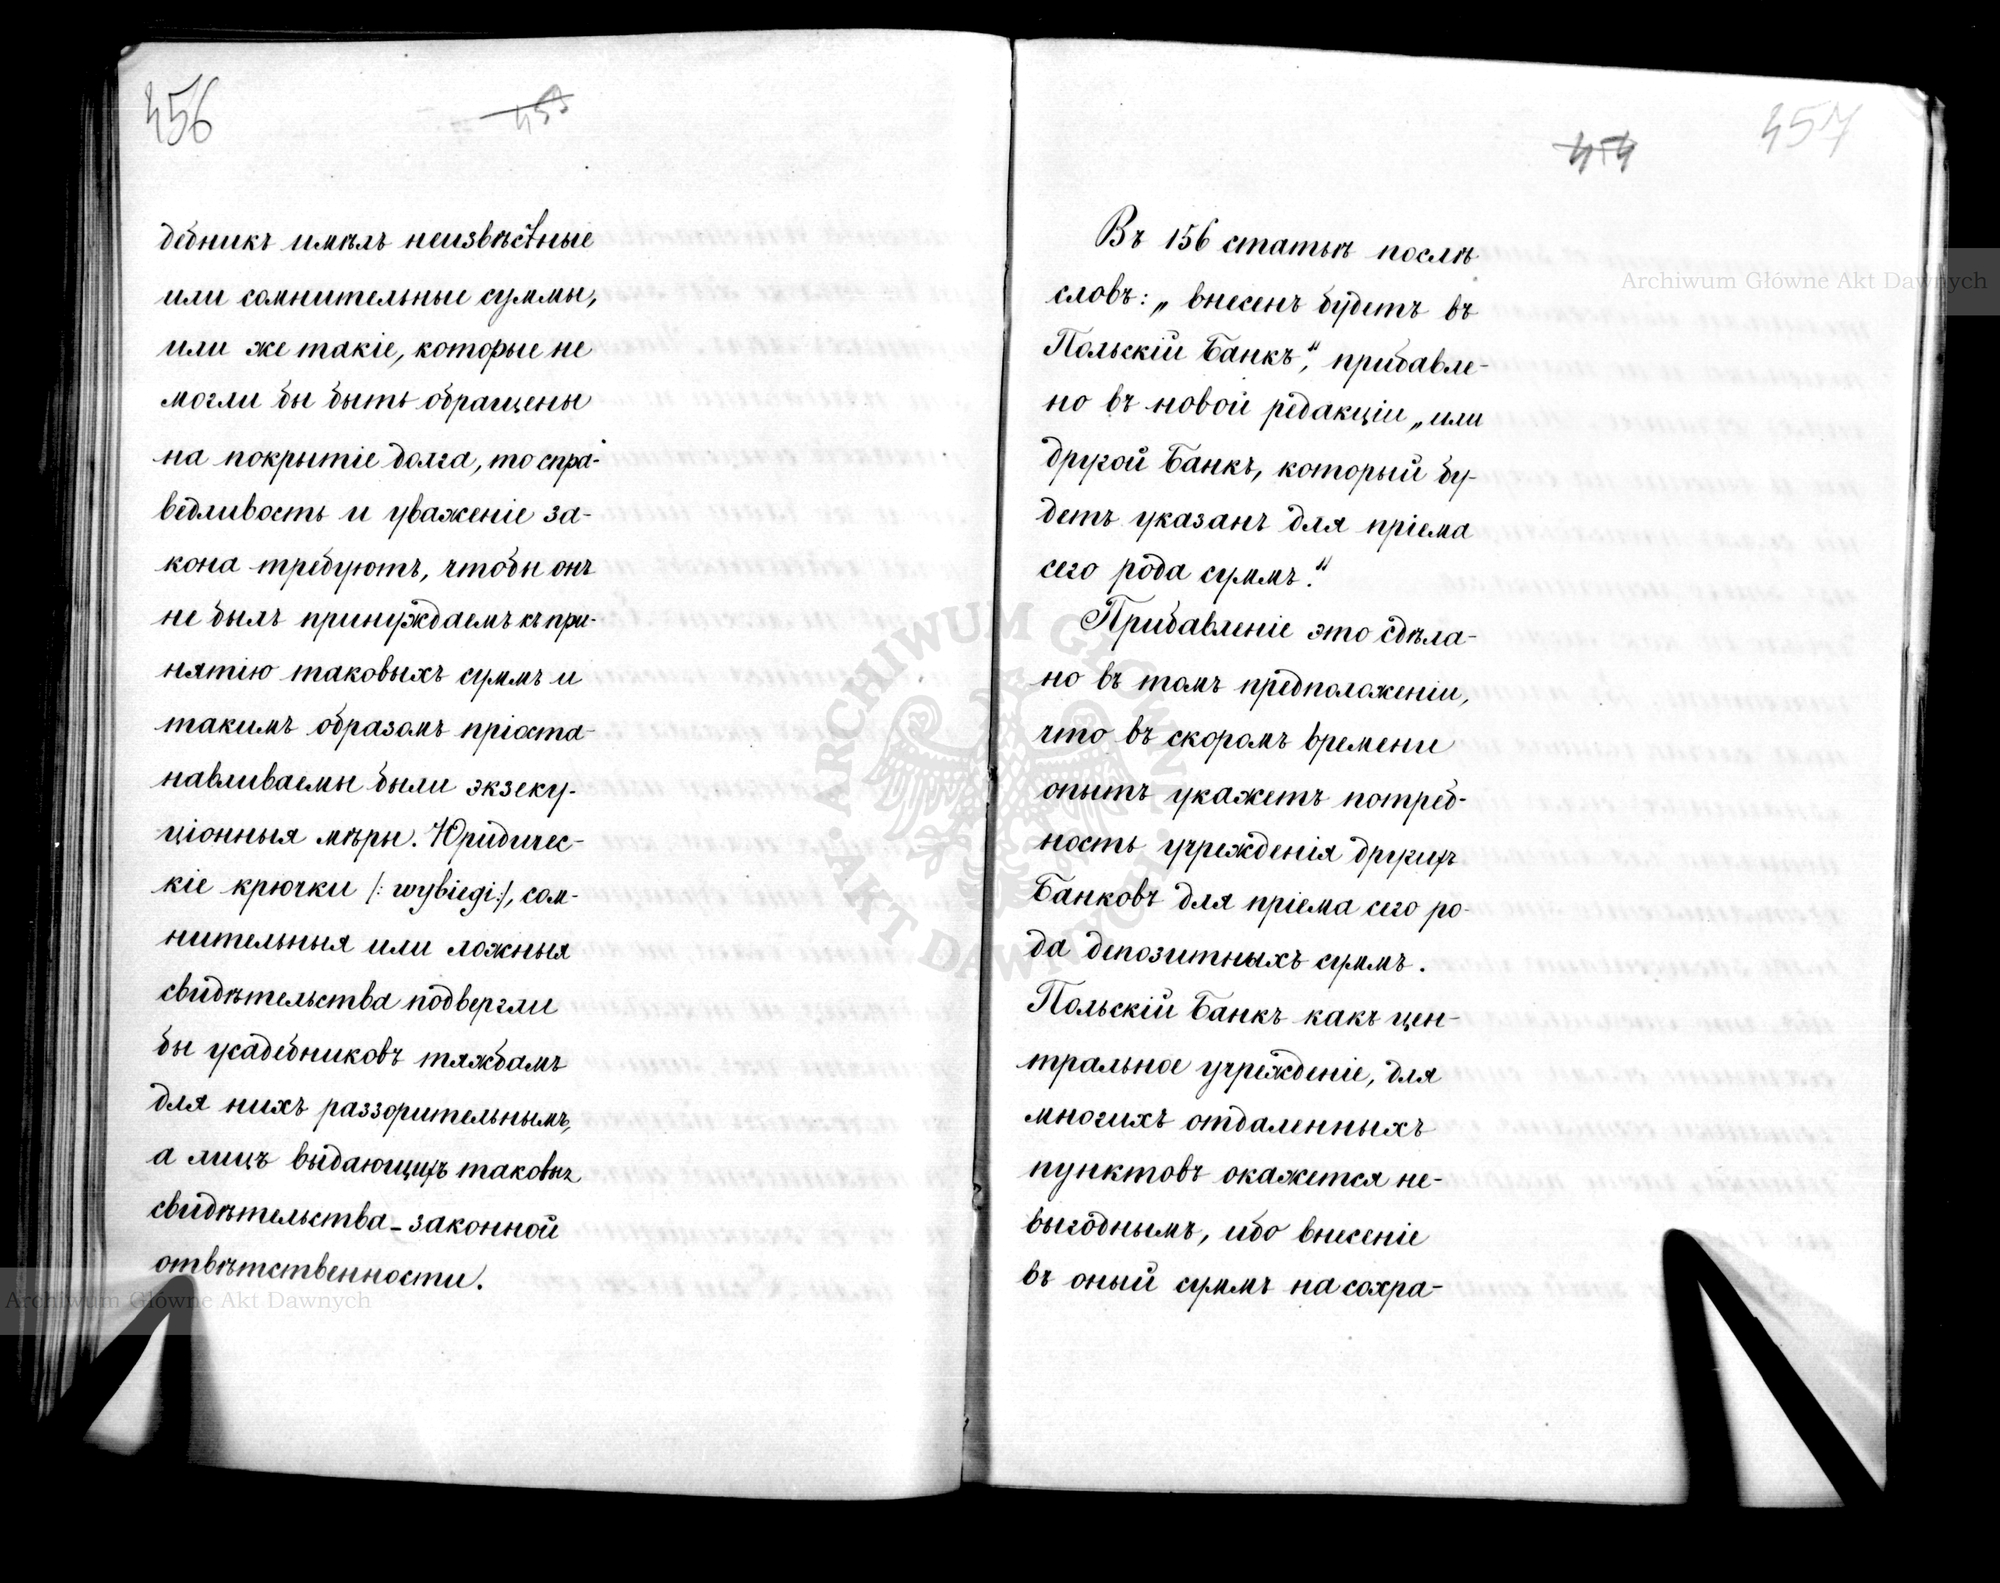 456
453
дебникъ имѣлъ неизвѣстные
или сомнительные суммы,
или же такіе, которые не
могли бы быть обращены
на покрытіе долга, то спра-
ведливость и уваженіе за-
кона требуютъ, чтобы онъ
не былъ принуждаемъ къ при-
нятію таковыхъ суммъ и
такимъ образомъ пріоста-
навливаемы были экзеку-
ціонныя мѣры. Юридичес-
кіе крючки /: wybiegi :/, сом-
нительныя или ложныя
свидѣтельства подвергли
бы усадебниковъ тяжбамъ
для нихъ раззорительнымъ,
а лицъ выдающихъ таковыя
свидѣтельства - законной
отвѣтственности.
457
454
Въ 156 статьѣ послѣ
словъ: „внесенъ будетъ въ
Польскій Банкъ", прибавле-
но въ новой редакціи „или
другой Банкъ, который бу-
детъ указанъ для пріема
сего рода суммъ."
Прибавленіе это сдѣла-
но въ томъ предположеніи,
что въ скоромъ времени
опытъ укажетъ потреб-
ность учрежденія другихъ
Банковъ для пріема сего ро-
да депозитныхъ суммъ.
Польскій Банкъ какъ цен-
тральное учрежденіе, для
многихъ отдаленныхъ
пунктовъ окажется не-
выгоднымъ, ибо внесеніе
въ оный суммъ на сохра-
Archiwum Główne Akt Dawnych
Archiwum Główne Akt Dawnych
ARCHIWUM GŁÓWNE AKT DAWNYCH